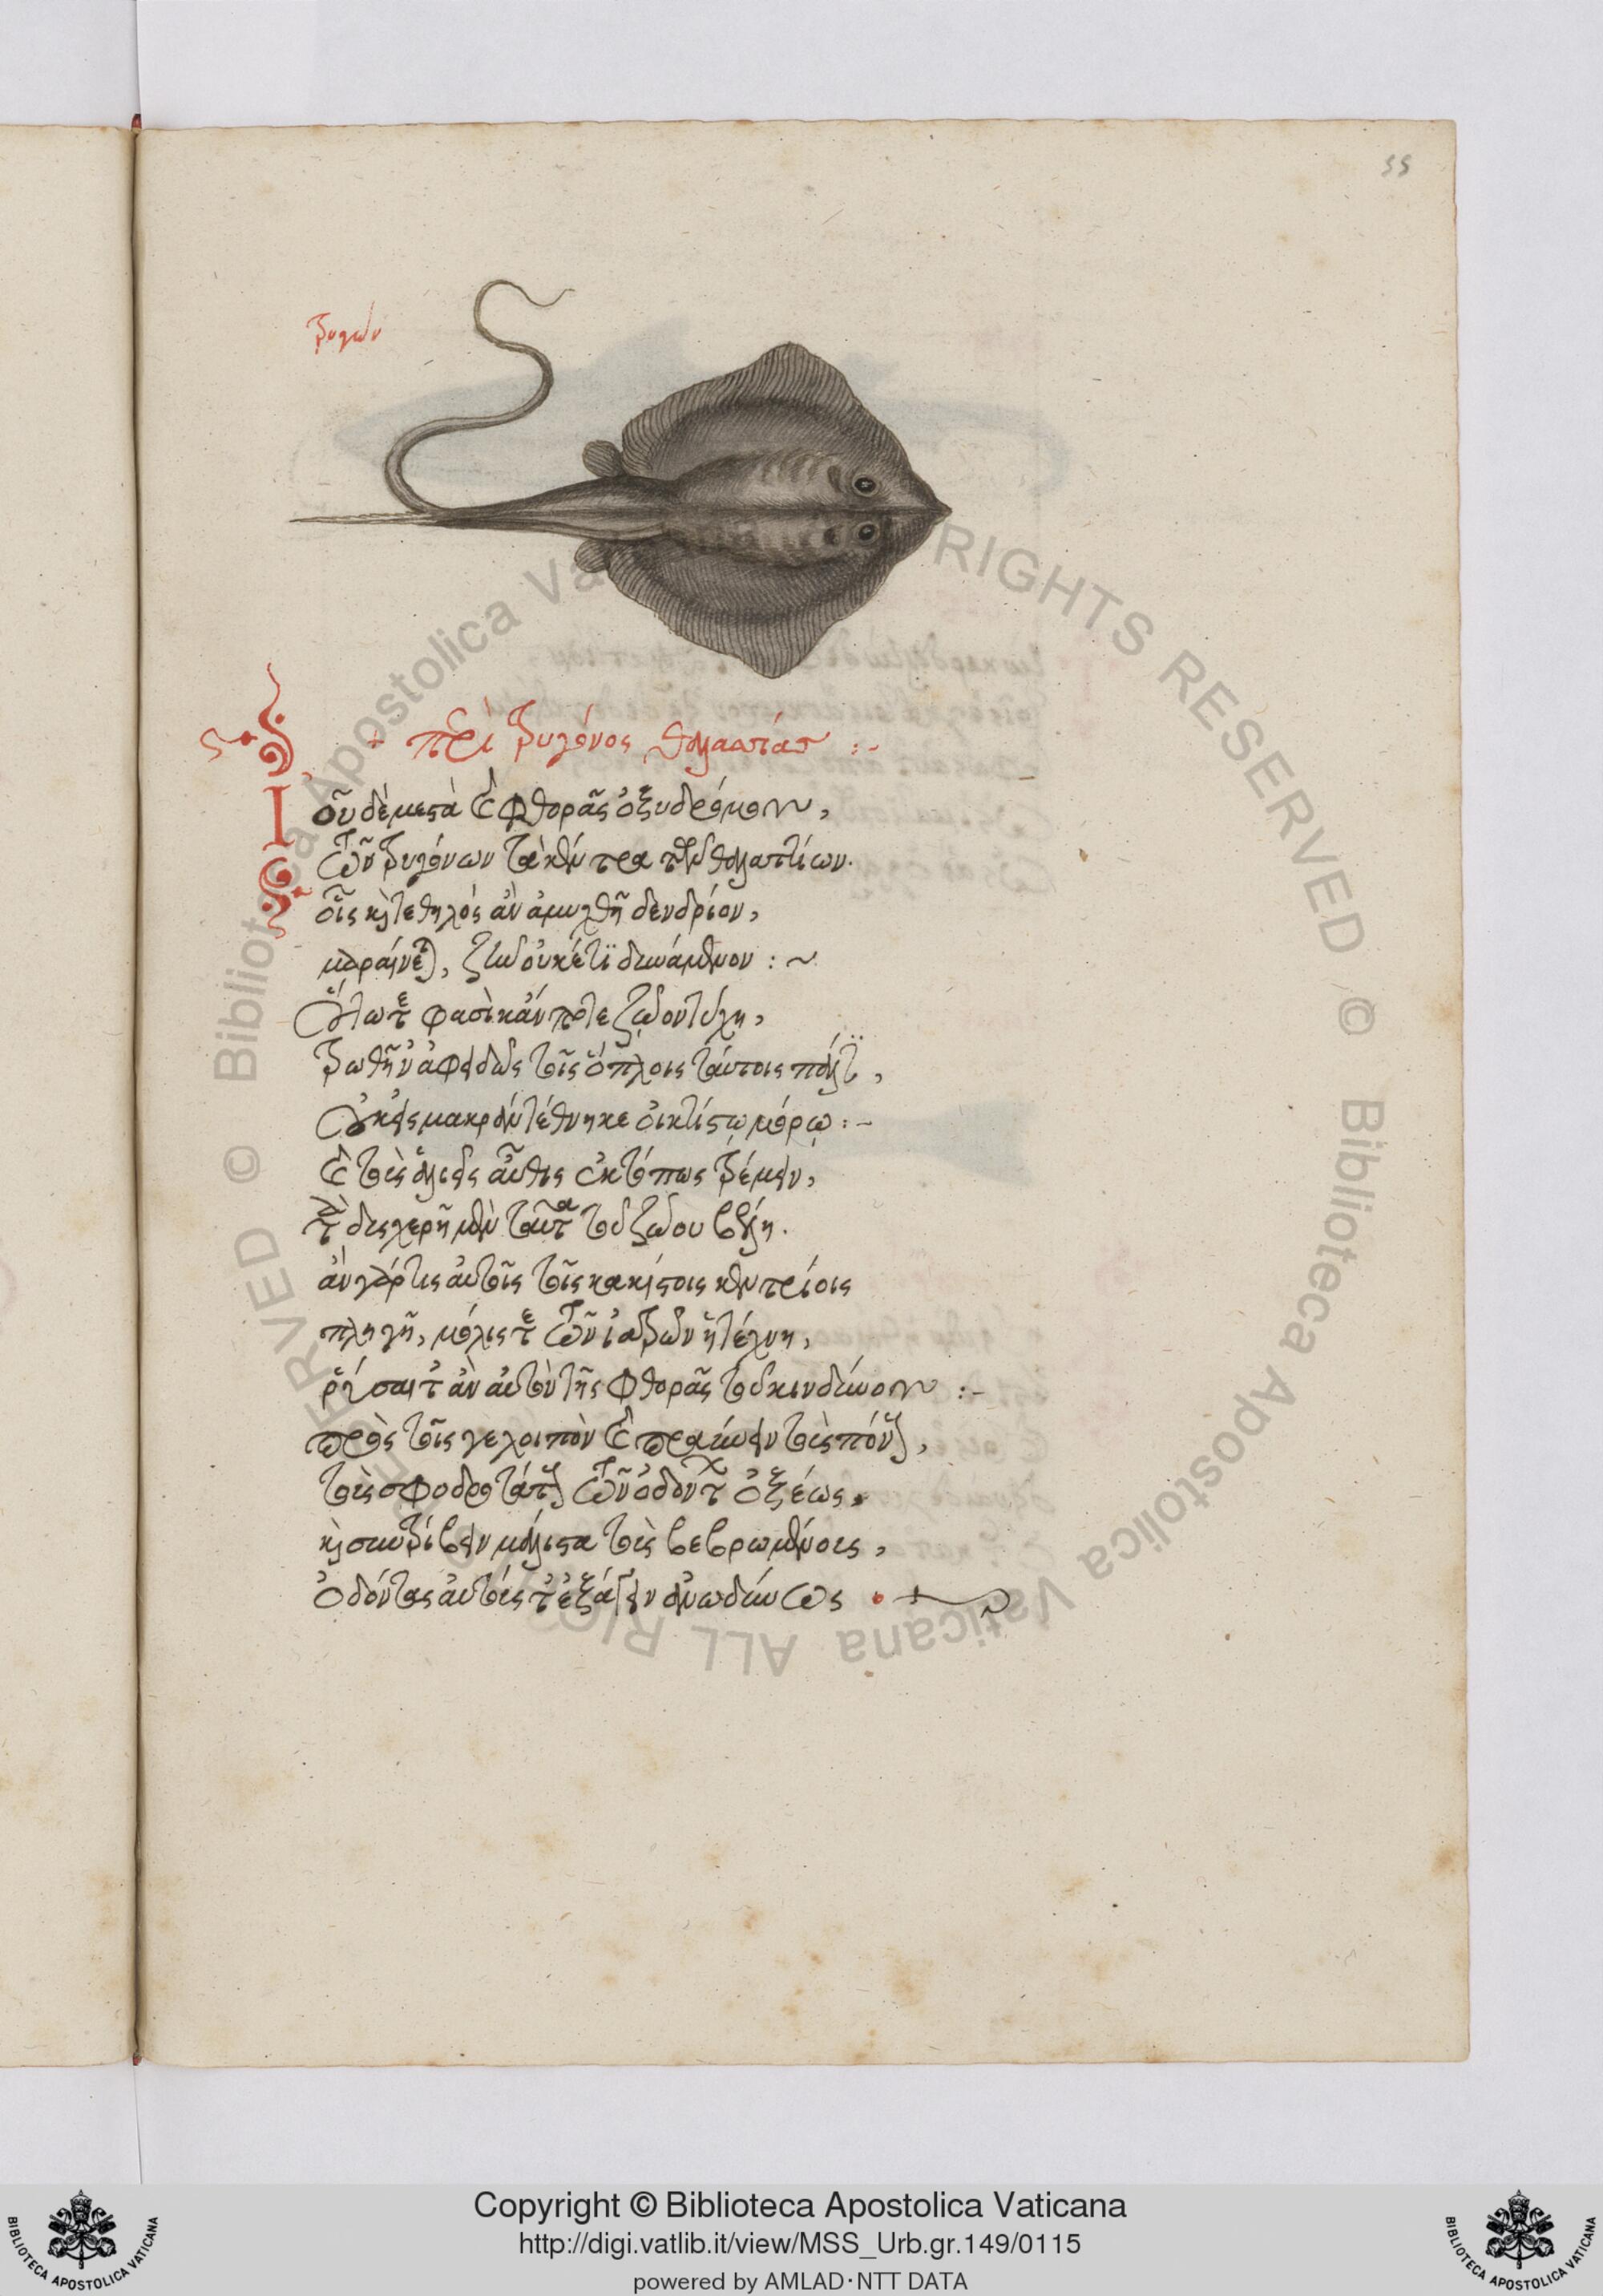 55
τρυγών
+ περὶ τρυγόνος θαλαττίας :-
Ἰοῦ δὲ μεστὰ καὶ φθορᾶς ὀξυδρόμου,
τῶν τρυγόνων τὰ κέντρα τῶν θαλαττίων.
οἷς καὶ τεθηλὸς ἂν ἀμυχθῇ δενδρίον,
μαραίνεται, ζῆν οὐκέτι δυνάμενον : ~
φασὶ κἄν ποτε ζῷον τύχῃ,
τρωθῆν ἀφειδῶς τοῖς ὅπλοις τούτοις
οὐκ εἰς μακρὰν τέθνηκε οἰκτίστῳ μόρῳ :-
καὶ τοὺς ἁλιεῖς αὖθις ἐκτόπως τρέμειν,
τὰ δυσχερῆ μὲν ταῦτα τοῦ ζῴου βέλη.
ἂν γάρ τις αὐτοῖς τοῖς κακίστοις κεντρίοις
πληγῇ, μόλις τε τῶν ἰατρῶν ἡ τέχνη,
ῥύσαιτ' ἂν αὐτὸν τῆς φθορᾶς τοῦ κινδύνου :-
πρὸς τοῖς γε λοιπὸν καὶ πραΰνειν τοὺς πόνους,
τοὺς σφοδροτάτους τῶν ὀδόντων ὀξέως,
καὶ συντρίβειν μάλιστα τοὺς βεβρωμένους,
ὀδόντας αὐτούς τ' ἐξάγειν ἀνωδύνως
Copyright © Biblioteca Apostolica Vaticana
http://digi.vatlib.it/view/MSS_Urb.gr.149/0115
powered by AMLAD·NTT DATA
BIBLIOTECA APOSTOLICA VATICANA
BIBLIOTECA APOSTOLICA VATICANA
© Biblioteca Apostolica Vaticana ALL RIGHTS RESERVED © Biblioteca Apostolica Vaticana ALL RIGHTS RESERVED